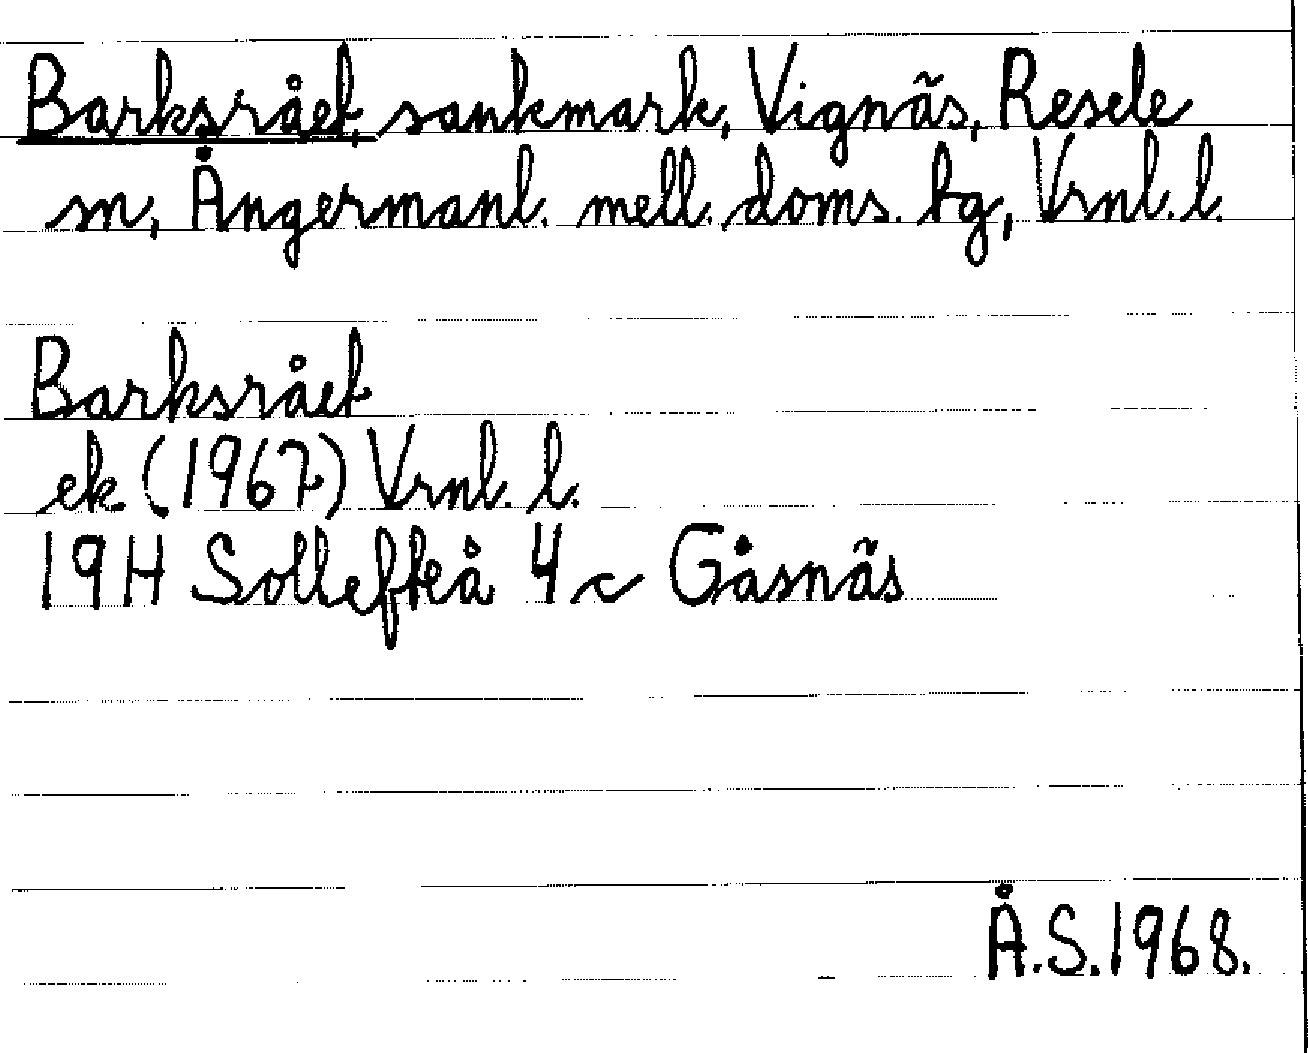 Barksrået, sankmark, Vignäs, Resele
sn, Ångermanl. mell. doms. tg, Vrnl. l.
Barksrået
ek (1967) Vrnl. l.
19H Sollefteå 4 c Gåsnäs
Å.S. 1968.